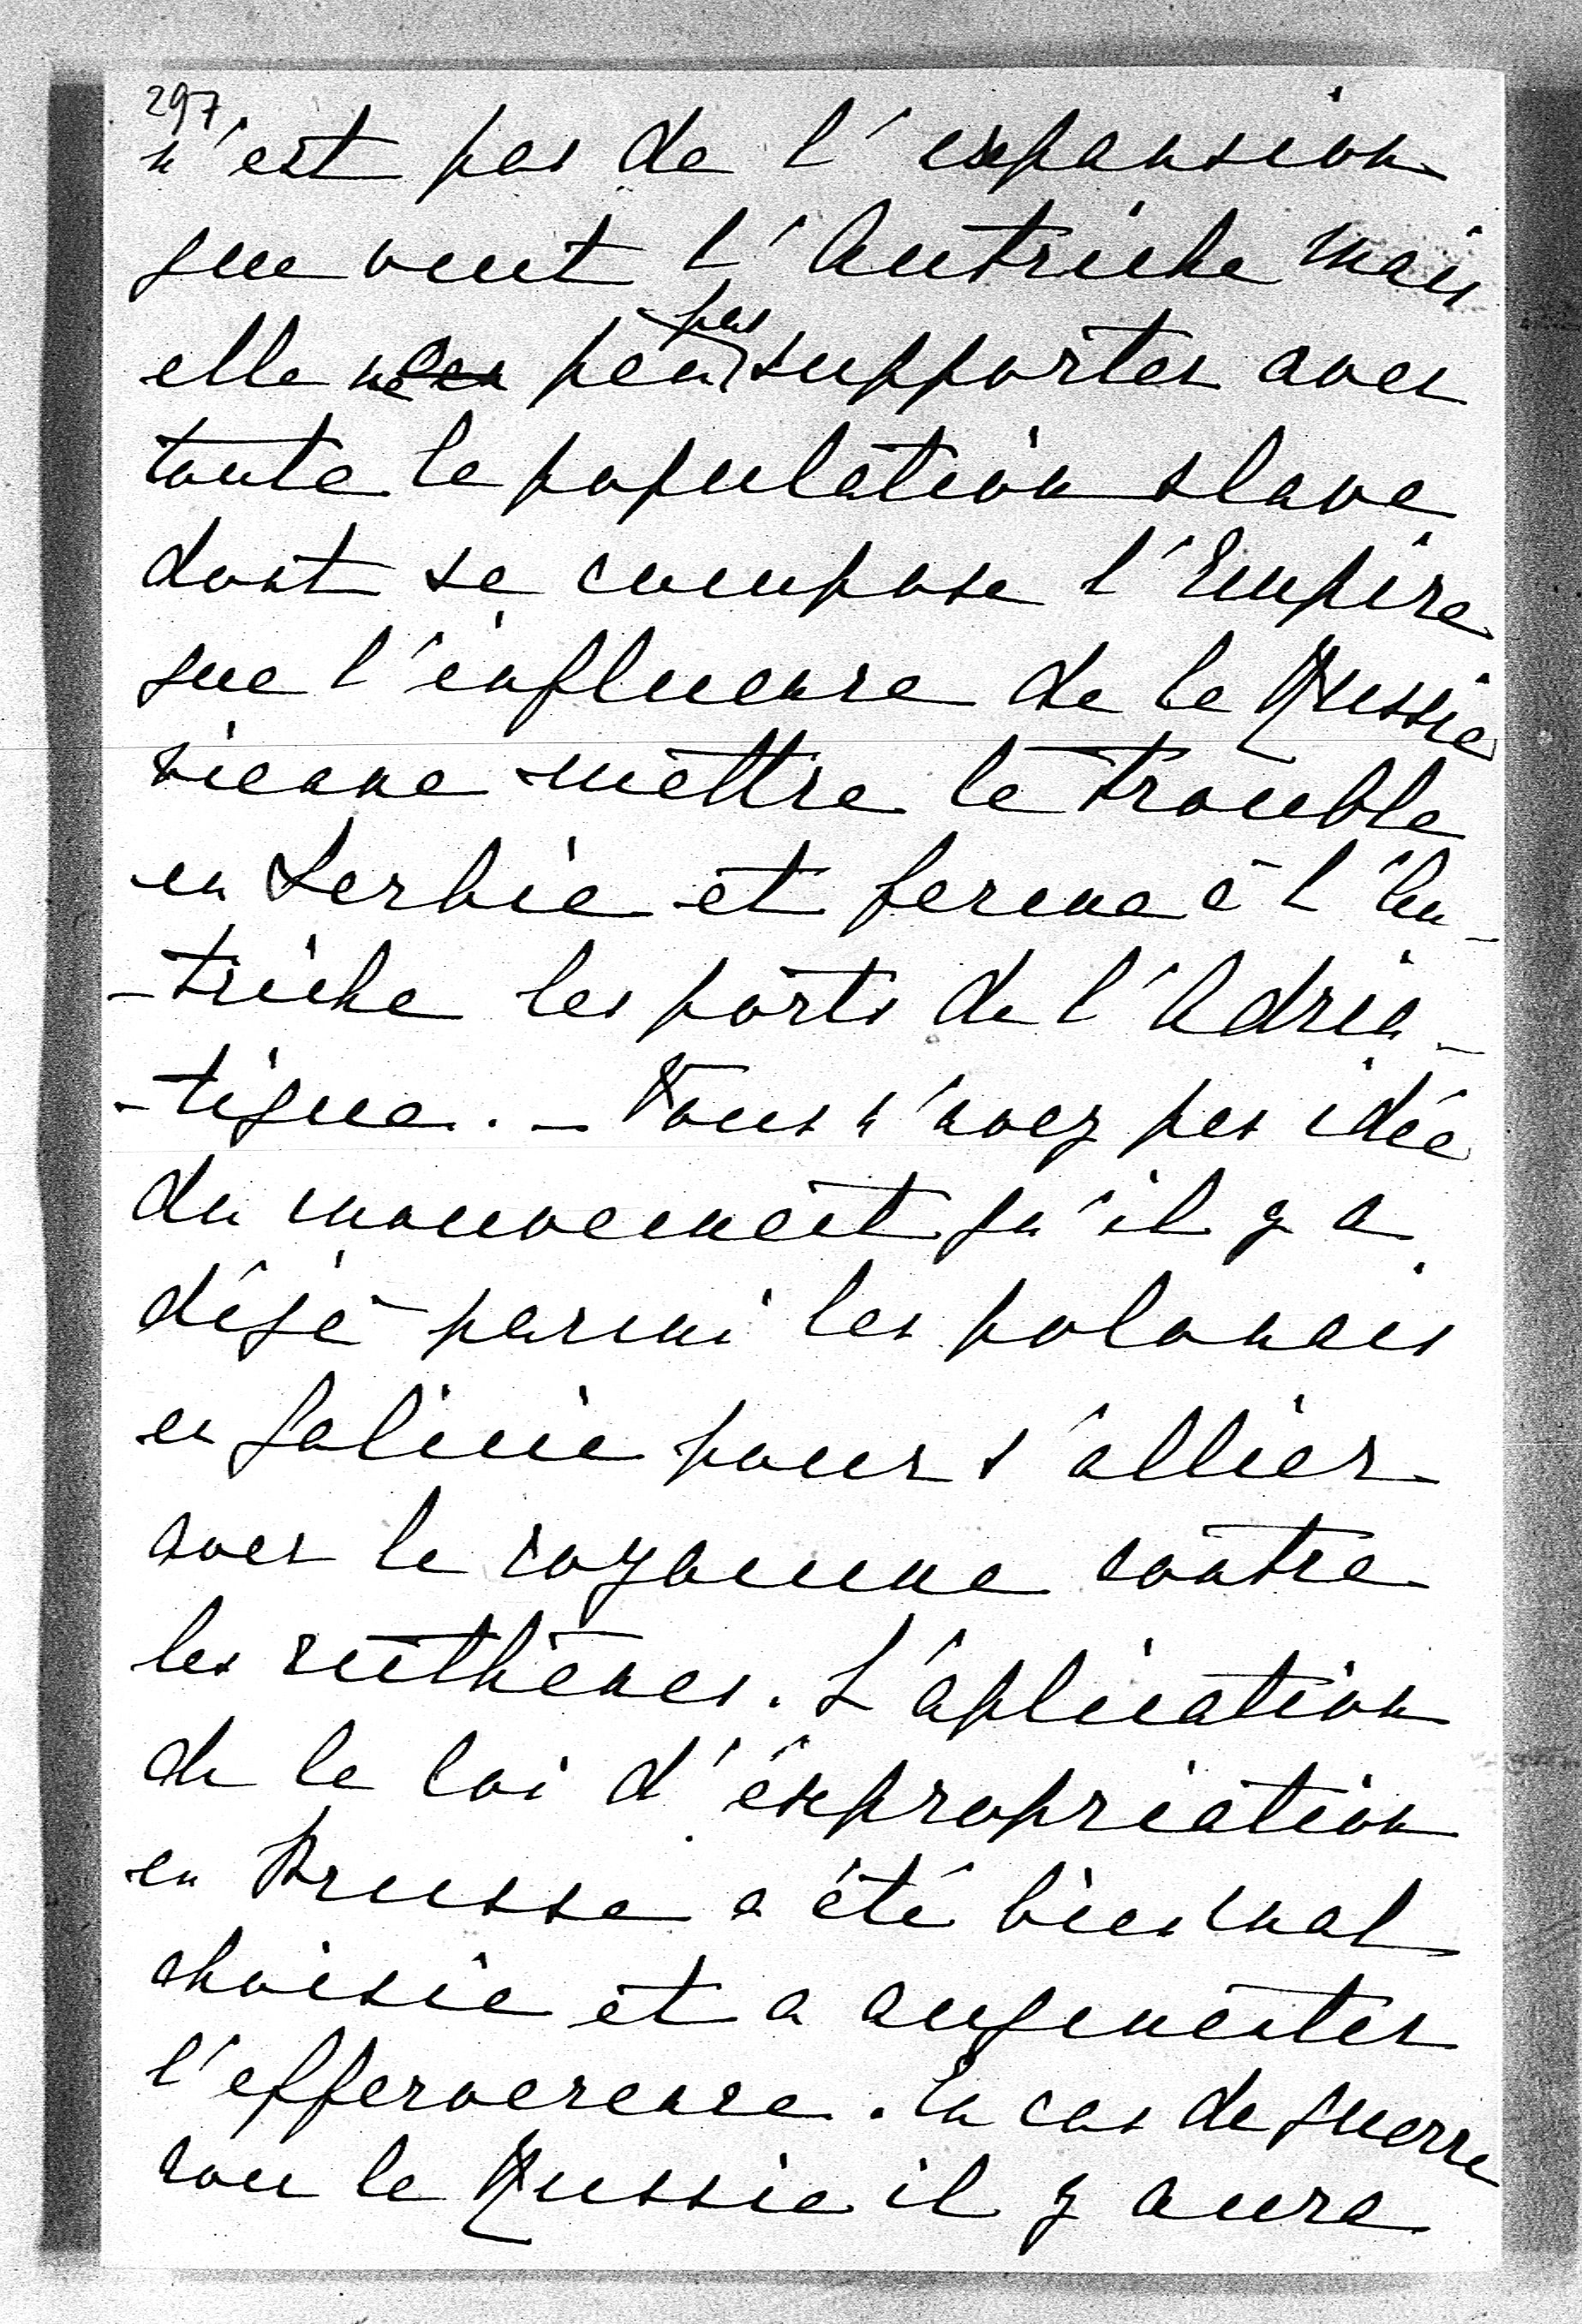 297
n'est pas de l'expansion
que veut l'Autriche mais
elle ne peut pas supporter avec
toute la population slave
dont se compose l'Empire
que l'influence de la Russie
vienne mettre le trouble
en Serbie et ferme à l'Au-
-triche les ports de l'Adria-
-tique. - Vous n'avez pas idée
du mouvement qu'il y a
déjà parmi les polonais
en Galicie pour s'allier
avec le royaume contre
les ruthènes. L'aplication
de la loi d'éxpropriation
en Prusse a été bien mal
choisie et a augmenter
l'effervescence. En cas de guerre
la Russie il y aura